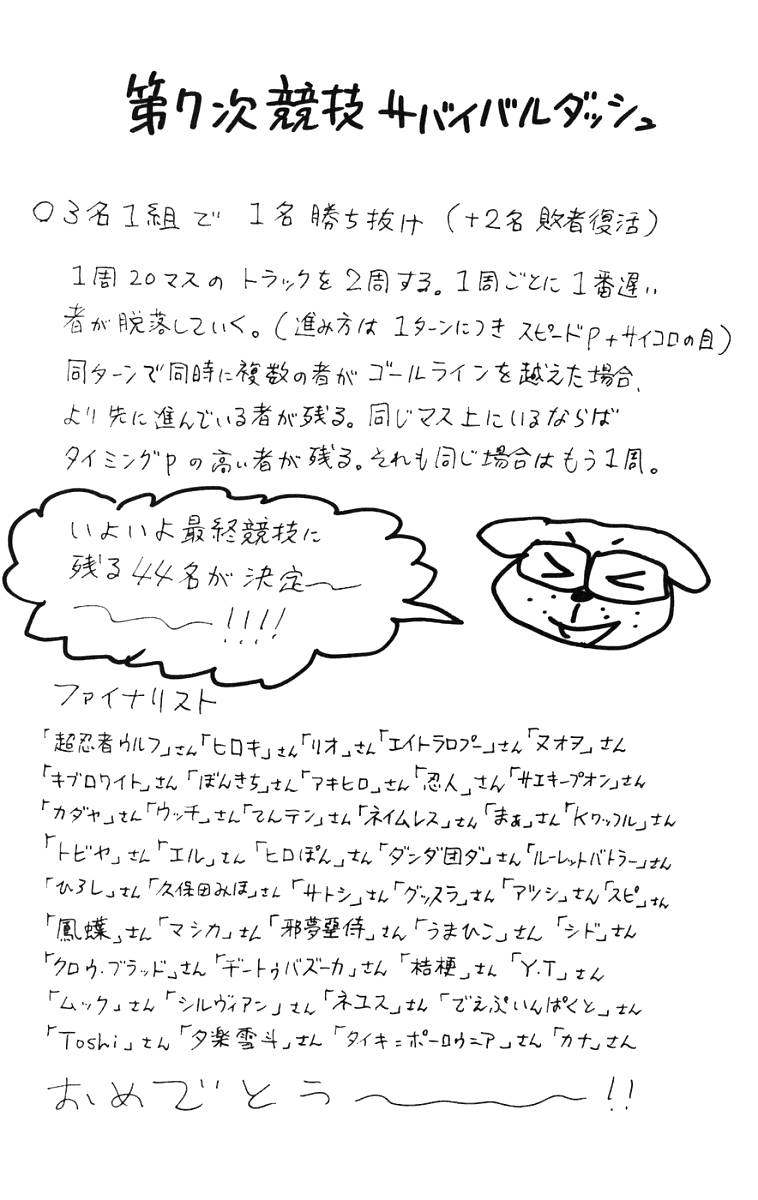 第7次競技 サバイバルダッシュ
○3名1組で 1名勝ち抜け (+2名 敗者復活)
1周20マスの トラックを2周する。1周ごとに1番遅い
者が脱落していく。(進み方は 1ターンにつき スピードP+サイコロの目)
同ターンで同時に複数の者が ゴールラインを越えた場合、
より先に進んでいる者が残る。同じマス上にいるならば
タイミングPの高い者が残る。それも同じ場合はもう1周。
いよいよ最終競技に
残る44名が決定〜
〜!!!!
ファイナリスト
「超忍者ウルフ」さん「ヒロキ」さん「リオ」さん「エイトラロプー」さん「ヌオヲ」さん
「キブロワイト」さん「ぼんきち」さん「アキヒロ」さん「忍人」さん「サエキープオン」さん
「カダヤ」さん「ウッチ」さん「てんテン」さん「ネイムレス」さん「まぁ」さん「Kワッフル」さん
「トビヤ」さん「エル」さん「ヒロぽん」さん「ダンダ団ダ」さん「ルーレットバトラー」さん
「ひろし」さん「久保田みほ」さん「サトシ」さん「グッスラ」さん「アツシ」さん「スピ」さん
「鳳蝶」さん「マシカ」さん「邪夢壐侍」さん「うまひこ」さん「シド」さん
「クロウ・ブラッド」さん「ヂートゥバズーカ」さん「桔梗」さん「Y.T」さん
「ムック」さん「シルヴィアン」さん「ネユス」さん「でえぷいんぱくと」さん
「Toshi」さん「夕楽雲斗」さん「タイキ=ポーロウニア」さん「カナ」さん
おめでとう〜!!